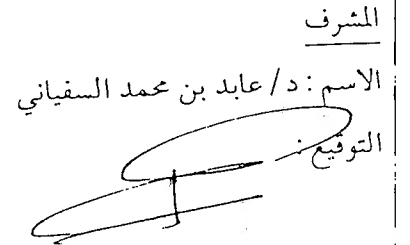 المشرف
الاسم : د/ عابد بن محمد السفياني
التوقيع :